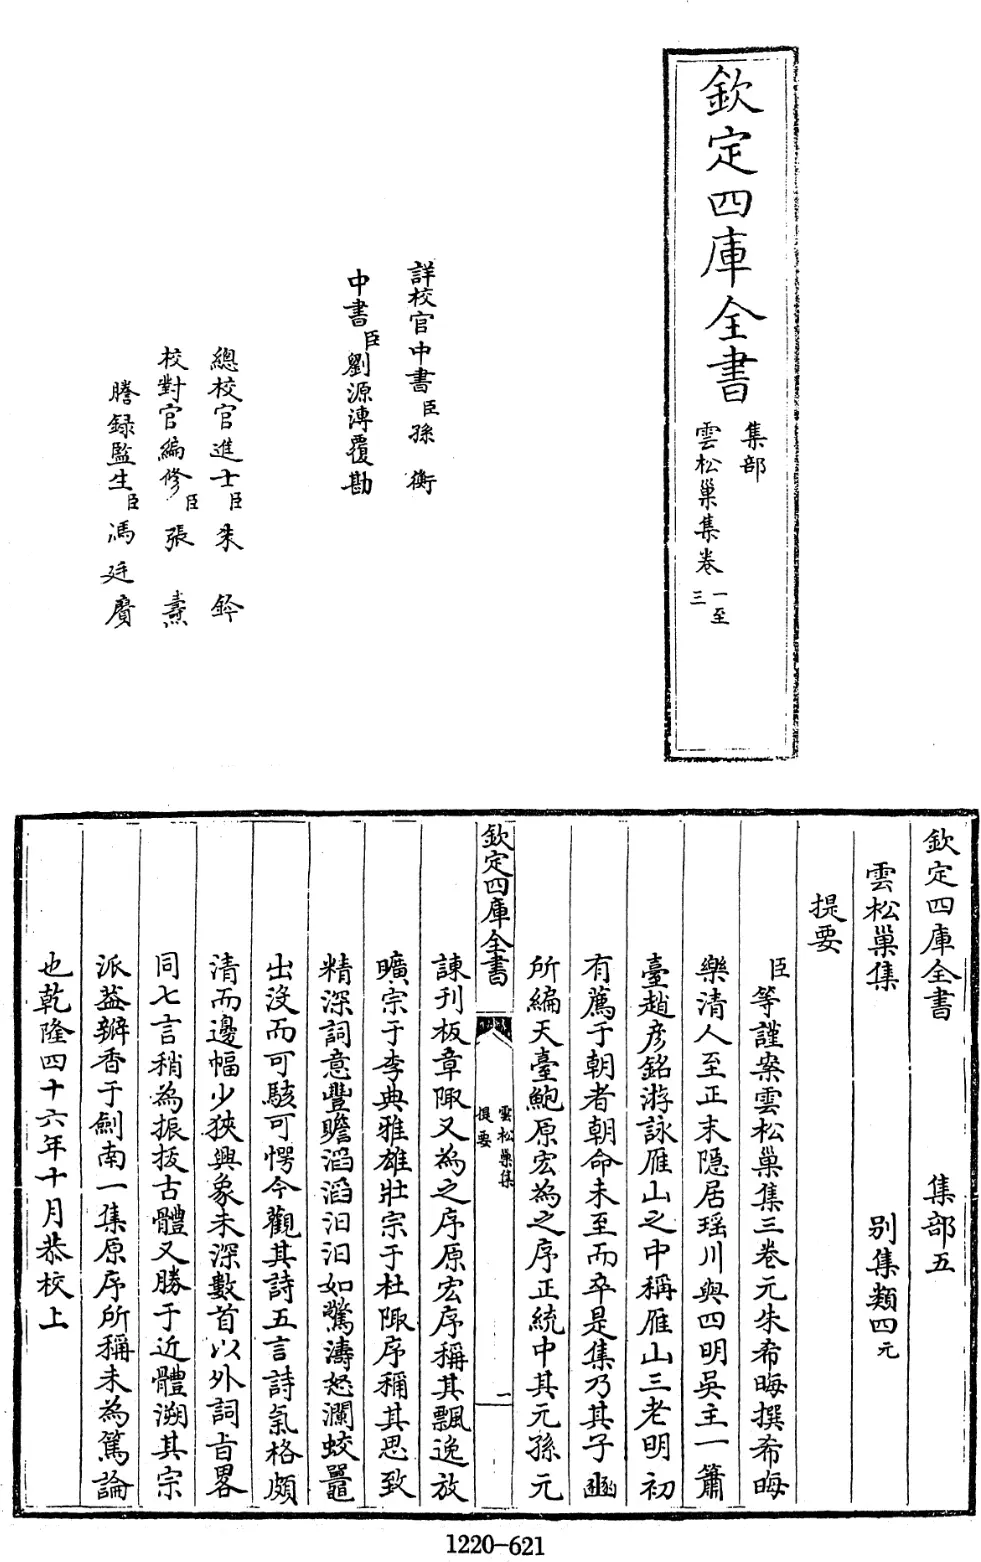 欽定四庫全書
集部
雲松巢集卷一至三
詳校官中書臣孫衡
中書臣劉源溥覆勘
總校官進士臣朱鈐
校對官編修臣張燾
謄録監生臣馮廷賡
欽定四庫全書 集部五
雲松巢集 别集類四元
提要
臣等謹案雲松巢集三卷元朱希晦撰希晦
樂清人至正末隠居瑶川與四明吳主一簫
臺趙彦銘游詠雁山之中稱雁山三老明初
有薦于朝者朝命未至而卒是集乃其子幽
所編天臺鮑原宏為之序正統中其元孫元
欽定四庫全書
雲松巢集
提要
一
諫刊板章陬又為之序原宏序稱其飄逸放
曠宗于李典雅雄壯宗于杜陬序稱其思致
精深詞意豐贍滔滔汩汩如驚濤怒瀾蛟鼉
出没而可駭可愕今觀其詩五言詩氣格頗
清而邊幅少狹興象未深數首以外詞旨畧
同七言稍為振拔古體又勝于近體溯其宗
派葢瓣香于劍南一集原序所稱未為篤論
也乾隆四十六年十月恭校上
1220-621